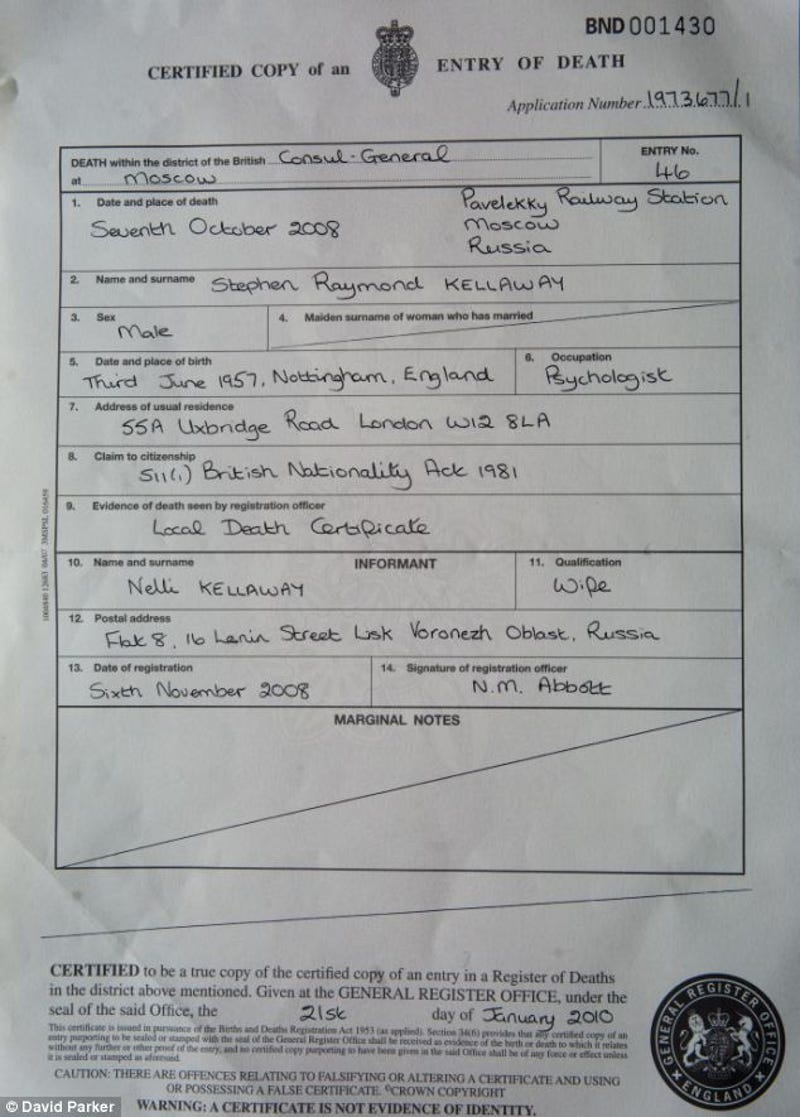 BND 001430
CERTIFIED COPY of an ENTRY OF DEATH
Application Number 1973677/1
DEATH within the district of the British Consul-General
at Moscow
ENTRY No.
46
1. Date and place of death
Seventh October 2008
Pavelekky Railway Station
Moscow
Russia
2. Name and surname Stephen Raymond KELLAWAY
3. Sex
Male
4. Maiden surname of woman who has married
5. Date and place of birth
Third June 1957, Nottingham, England
6. Occupation
Psychologist
7. Address of usual residence
55A Uxbridge Road London W12 8LA
8. Claim to citizenship
S11(1) British Nationality Act 1981
9. Evidence of death seen by registration officer
Local Death Certificate
10. Name and surname INFORMANT
Nelli KELLAWAY
11. Qualification
Wife
12. Postal address
Flat 8, 16 Lenin Street Lisk Voronezh Oblast, Russia
13. Date of registration
Sixth November 2008
14. Signature of registration officer
N.M. Abbott
MARGINAL NOTES
CERTIFIED to be a true copy of the certified copy of an entry in a Register of Deaths
in the district above mentioned. Given at the GENERAL REGISTER OFFICE, under the
seal of the said Office, the 21st day of January 2010
This certificate is issued in pursuance of the Births and Deaths Registration Act 1953 (as applied). Section 34(6) provides that any certified copy of an
entry purporting to be sealed or stamped with the seal of the General Register Office shall be received as evidence of the birth or death to which it relates
without any further or other proof of the entry, and no certified copy purporting to have been given in the said Office shall be of any force or effect unless
it is sealed or stamped as aforesaid.
CAUTION: THERE ARE OFFENCES RELATING TO FALSIFYING OR ALTERING A CERTIFICATE AND USING
OR POSSESSING A FALSE CERTIFICATE. ©CROWN COPYRIGHT
WARNING: A CERTIFICATE IS NOT EVIDENCE OF IDENTITY.
GENERAL REGISTER OFFICE
ENGLAND
© David Parker